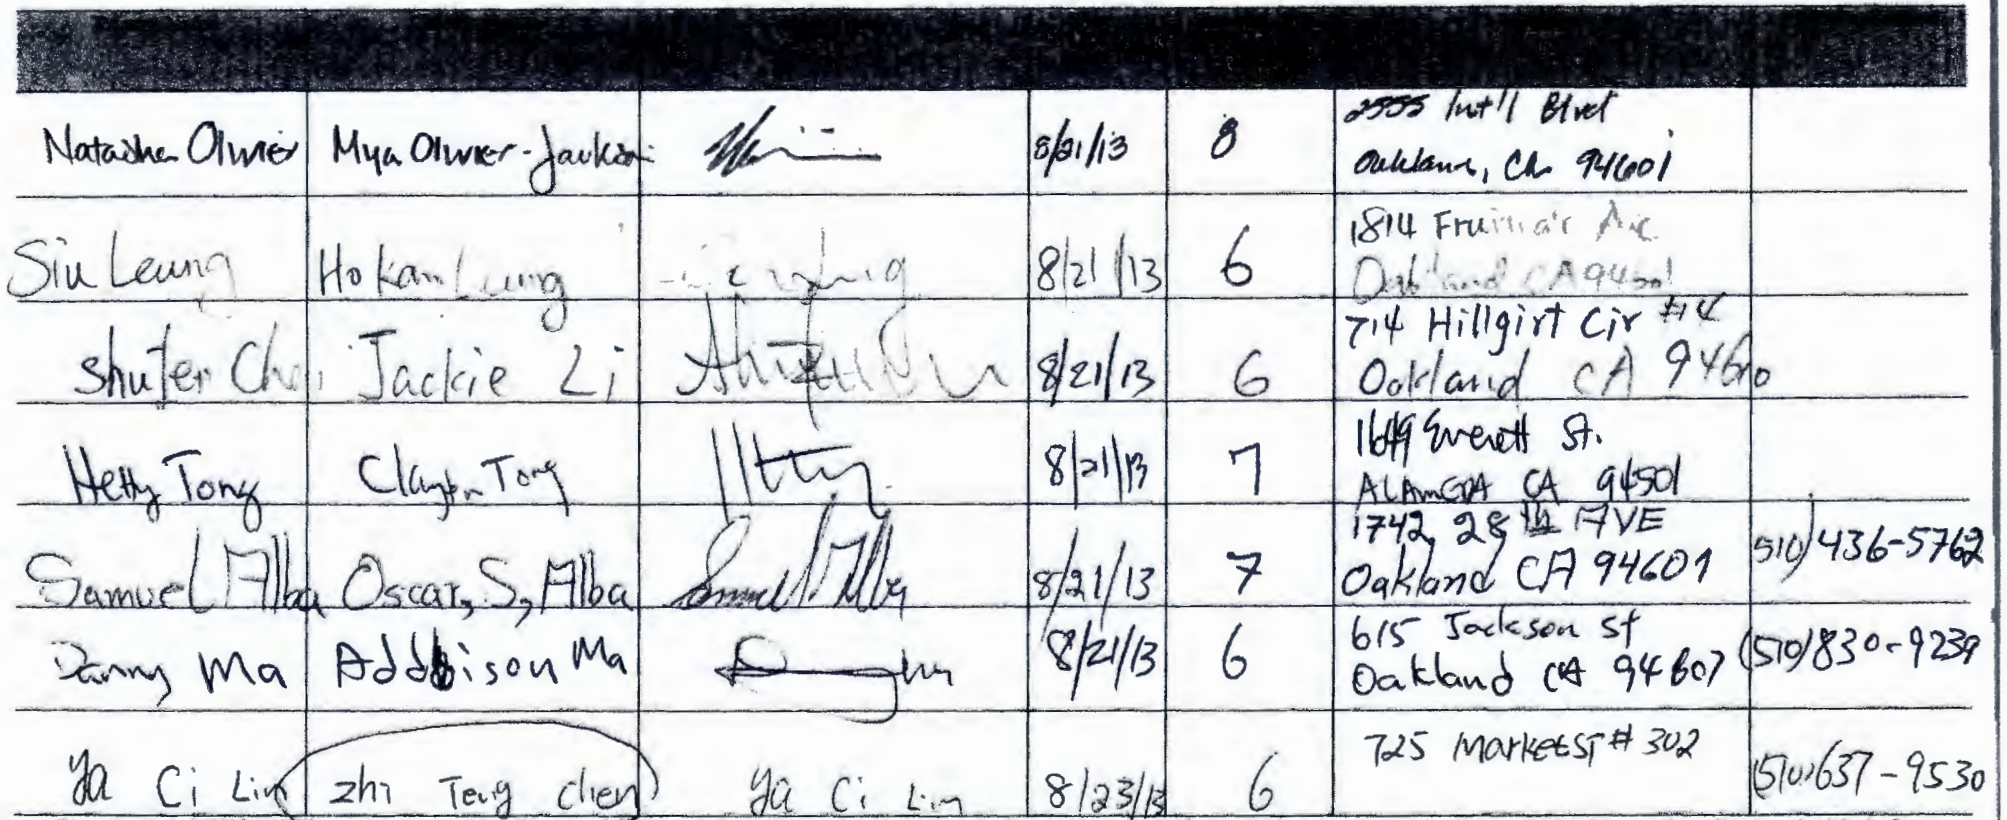 Natasha Olivier Mya Olivier-Jackson 8/21/13 8 2555 Int'l Blvd
Oakland, CA 94601
Siu Leung Ho Kam Leung 8/21/13 6 1814
Oakland CA 94601
Shuten Jackie Li 8/21/13 6 714 Hillgirt Cir
Oakland CA 94610
Hetty Tong Clayton Tong 8/21/13 7 Everett St.
ALAMEDA CA 94501
Samuel Alba Oscar, S, Alba Samuel Alba 8/21/13 7 1742 28th AVE (510) 436-5762
Oakland CA 94601
Danny Ma Addison Ma 8/21/13 6 615 Jackson St (510) 830-9239
Oakland CA 94607
Ya Ci Lin Zhi Teng Chen Ya Ci Lin 8/23/13 6 725 Market ST # 302 (510) 637-9530